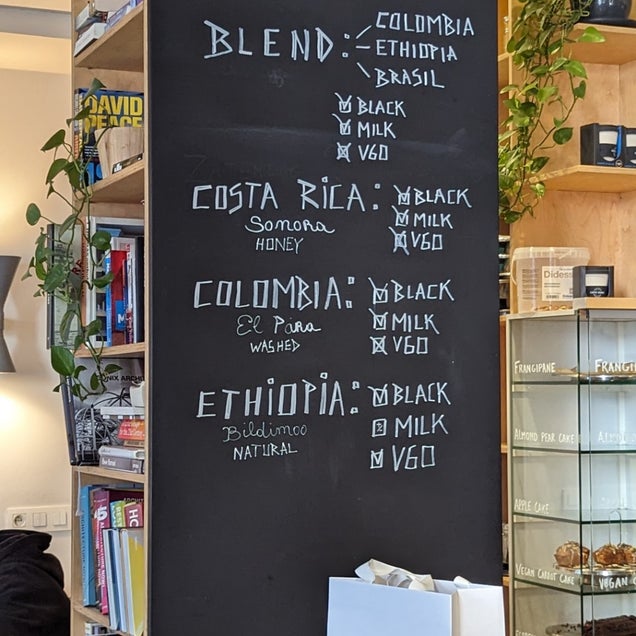 BLEND:
COLOMBIA
ETHIOPIA
BRASIL
☑ BLACK
☑ MILK
☒ V60
COSTA RICA:
Sonora
HONEY
☑ BLACK
☑ MILK
☒ V60
COLOMBIA:
El Pára
WASHED
☑ BLACK
☑ MILK
☒ V60
ETHIOPIA:
Bildimoo
NATURAL
☑ BLACK
MILK
☑ V60
DAVID
PEACE
Didess
FRANGIPANE
ALMOND PEAR CAKE
APPLE CAKE
VEGAN CARROT CAKE
VEGAN